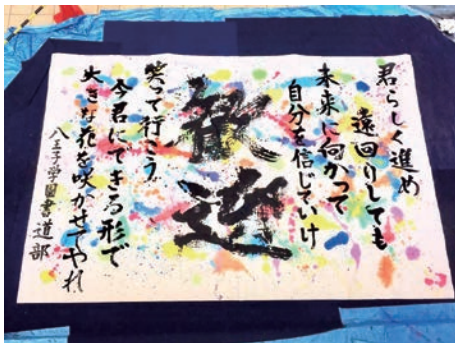 君らしく進め
遠回りしても
未来に向かって
自分を信じていけ
歓迎
笑って行こう
今君にできる形で
大きな花を咲かせてやれ
八王子学園書道部